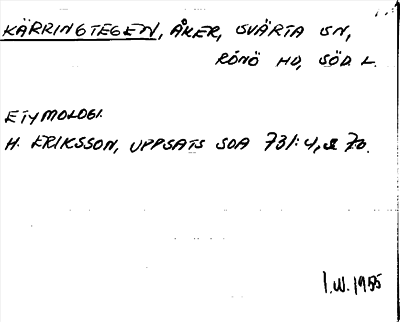 KÄRRINGTEGEN, ÅKER, SVÄRTA SN,
RÖNÖ HD, SÖD L.
ETYMOLOGI.
H. ERIKSSON, UPPSATS SOA 731:4, s 70.
I.W. 1955